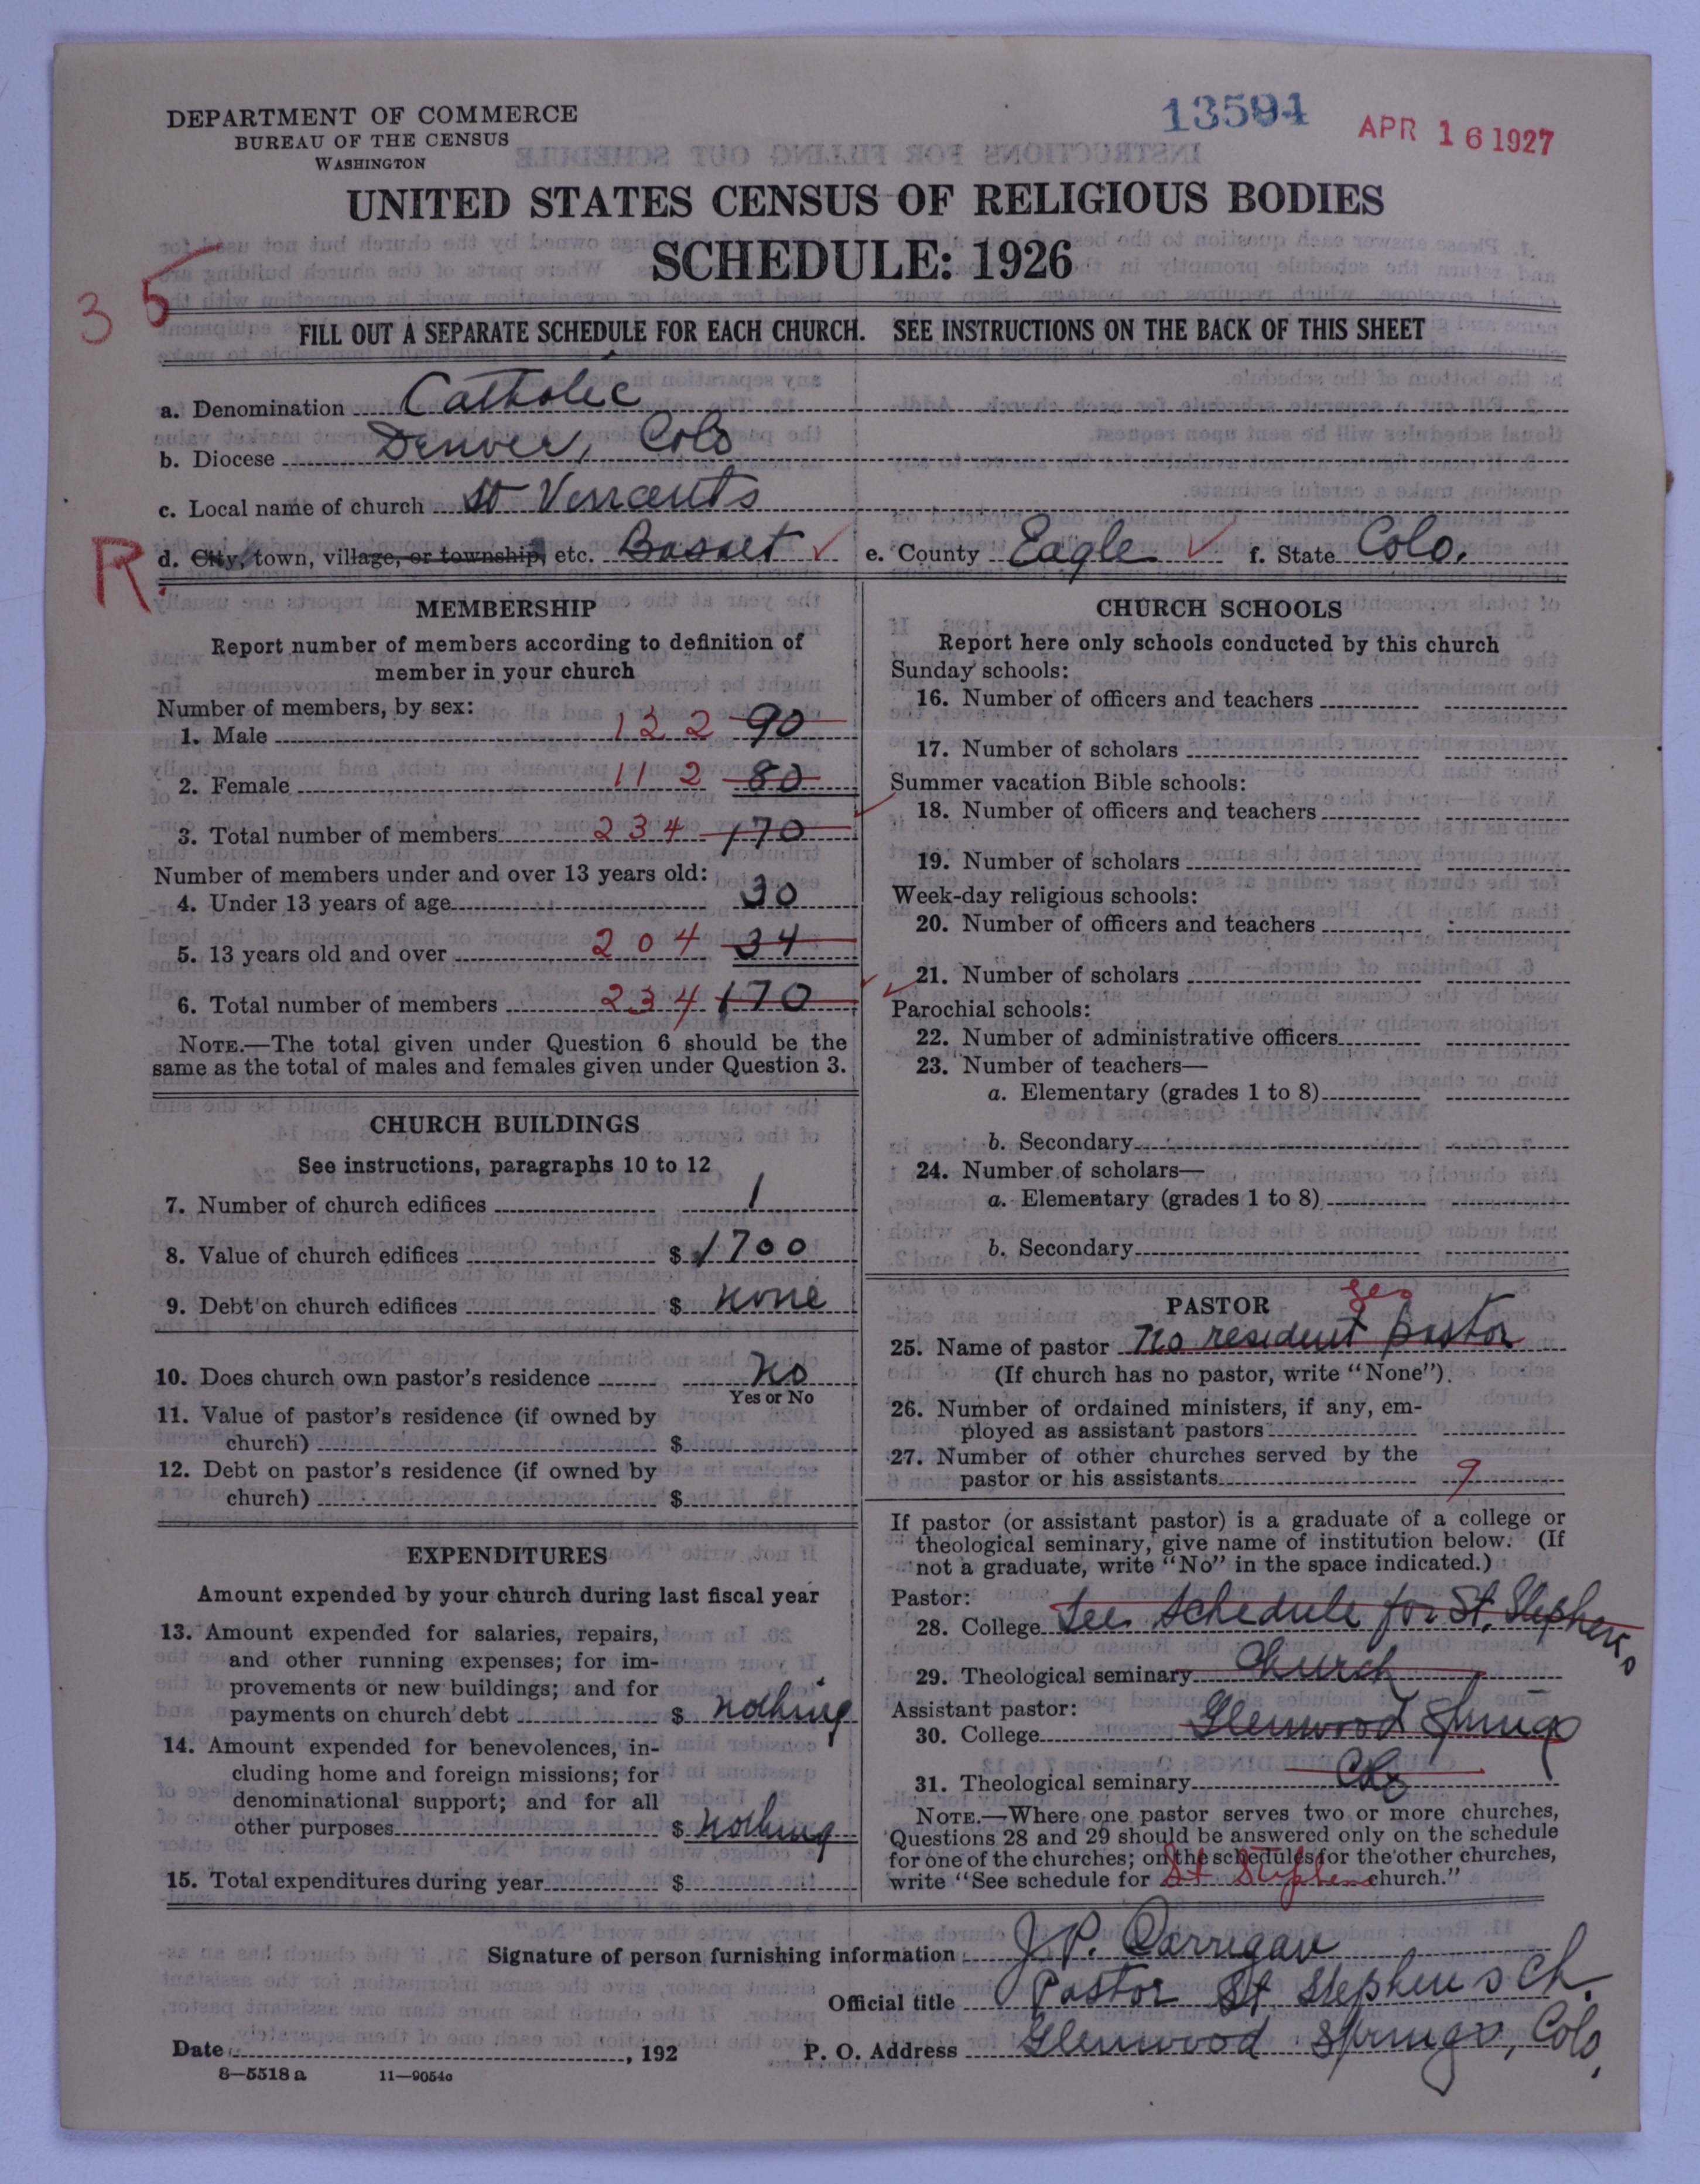 DEPARTMENT OF COMMERCE
BUREAU OF THE CENSUS
WASHINGTON
13594
APR 16 1927
UNITED STATES CENSUS OF RELIGIOUS BODIES
SCHEDULE: 1926
3 5
FILL OUT A SEPARATE SCHEDULE FOR EACH CHURCH. SEE INSTRUCTIONS ON THE BACK OF THIS SHEET
a. Denomination Catholic
b. Diocese Denver, Colo
c. Local name of church St Vincents
R d. City, town, village, or township, etc. Basset e. County Eagle f. State Colo.
MEMBERSHIP
Report number of members according to definition of
member in your church
Number of members, by sex:
1. Male 122 90
2. Female 112 80
3. Total number of members 234 170
Number of members under and over 13 years old:
4. Under 13 years of age 30
5. 13 years old and over 204 34
6. Total number of members 234 170
NOTE.—The total given under Question 6 should be the
same as the total of males and females given under Question 3.
CHURCH BUILDINGS
See instructions, paragraphs 10 to 12
7. Number of church edifices 1
8. Value of church edifices $ 1700
9. Debt on church edifices $ none
10. Does church own pastor's residence No
Yes or No
11. Value of pastor's residence (if owned by
church) $
12. Debt on pastor's residence (if owned by
church) $
EXPENDITURES
Amount expended by your church during last fiscal year
13. Amount expended for salaries, repairs,
and other running expenses; for im-
provements or new buildings; and for
payments on church debt $ nothing
14. Amount expended for benevolences, in-
cluding home and foreign missions; for
denominational support; and for all
other purposes $ nothing
15. Total expenditures during year $
CHURCH SCHOOLS
Report here only schools conducted by this church
Sunday schools:
16. Number of officers and teachers
17. Number of scholars
Summer vacation Bible schools:
18. Number of officers and teachers
19. Number of scholars
Week-day religious schools:
20. Number of officers and teachers
21. Number of scholars
Parochial schools:
22. Number of administrative officers
23. Number of teachers—
a. Elementary (grades 1 to 8)
b. Secondary
24. Number of scholars—
a. Elementary (grades 1 to 8)
b. Secondary
PASTOR
25. Name of pastor no resident pastor
(If church has no pastor, write "None").
26. Number of ordained ministers, if any, em-
ployed as assistant pastors
27. Number of other churches served by the
pastor or his assistants 9
If pastor (or assistant pastor) is a graduate of a college or
theological seminary, give name of institution below. (If
not a graduate, write "No" in the space indicated.)
Pastor:
28. College See schedule for St. Stephens
29. Theological seminary Church
Assistant pastor:
30. College Glenwood Springs
31. Theological seminary Colo
NOTE.—Where one pastor serves two or more churches,
Questions 28 and 29 should be answered only on the schedule
for one of the churches; on the schedules for the other churches,
write "See schedule for St Stephen church."
Signature of person furnishing information J. P. Carrigan
Official title Pastor St Stephens Ch.
Date , 192 P. O. Address Glenwood Springs, Colo,
8—5518 a 11—9054c